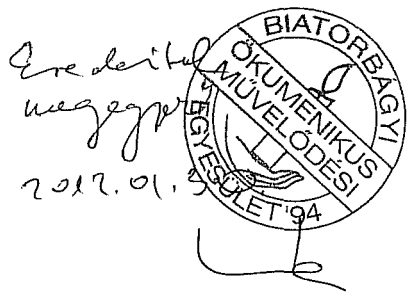 Eredetivel
megegyező
2012.01.30
BIATORBÁGYI
ÖKUMENIKUS
MŰVELŐDÉSI
EGYESÜLET '94